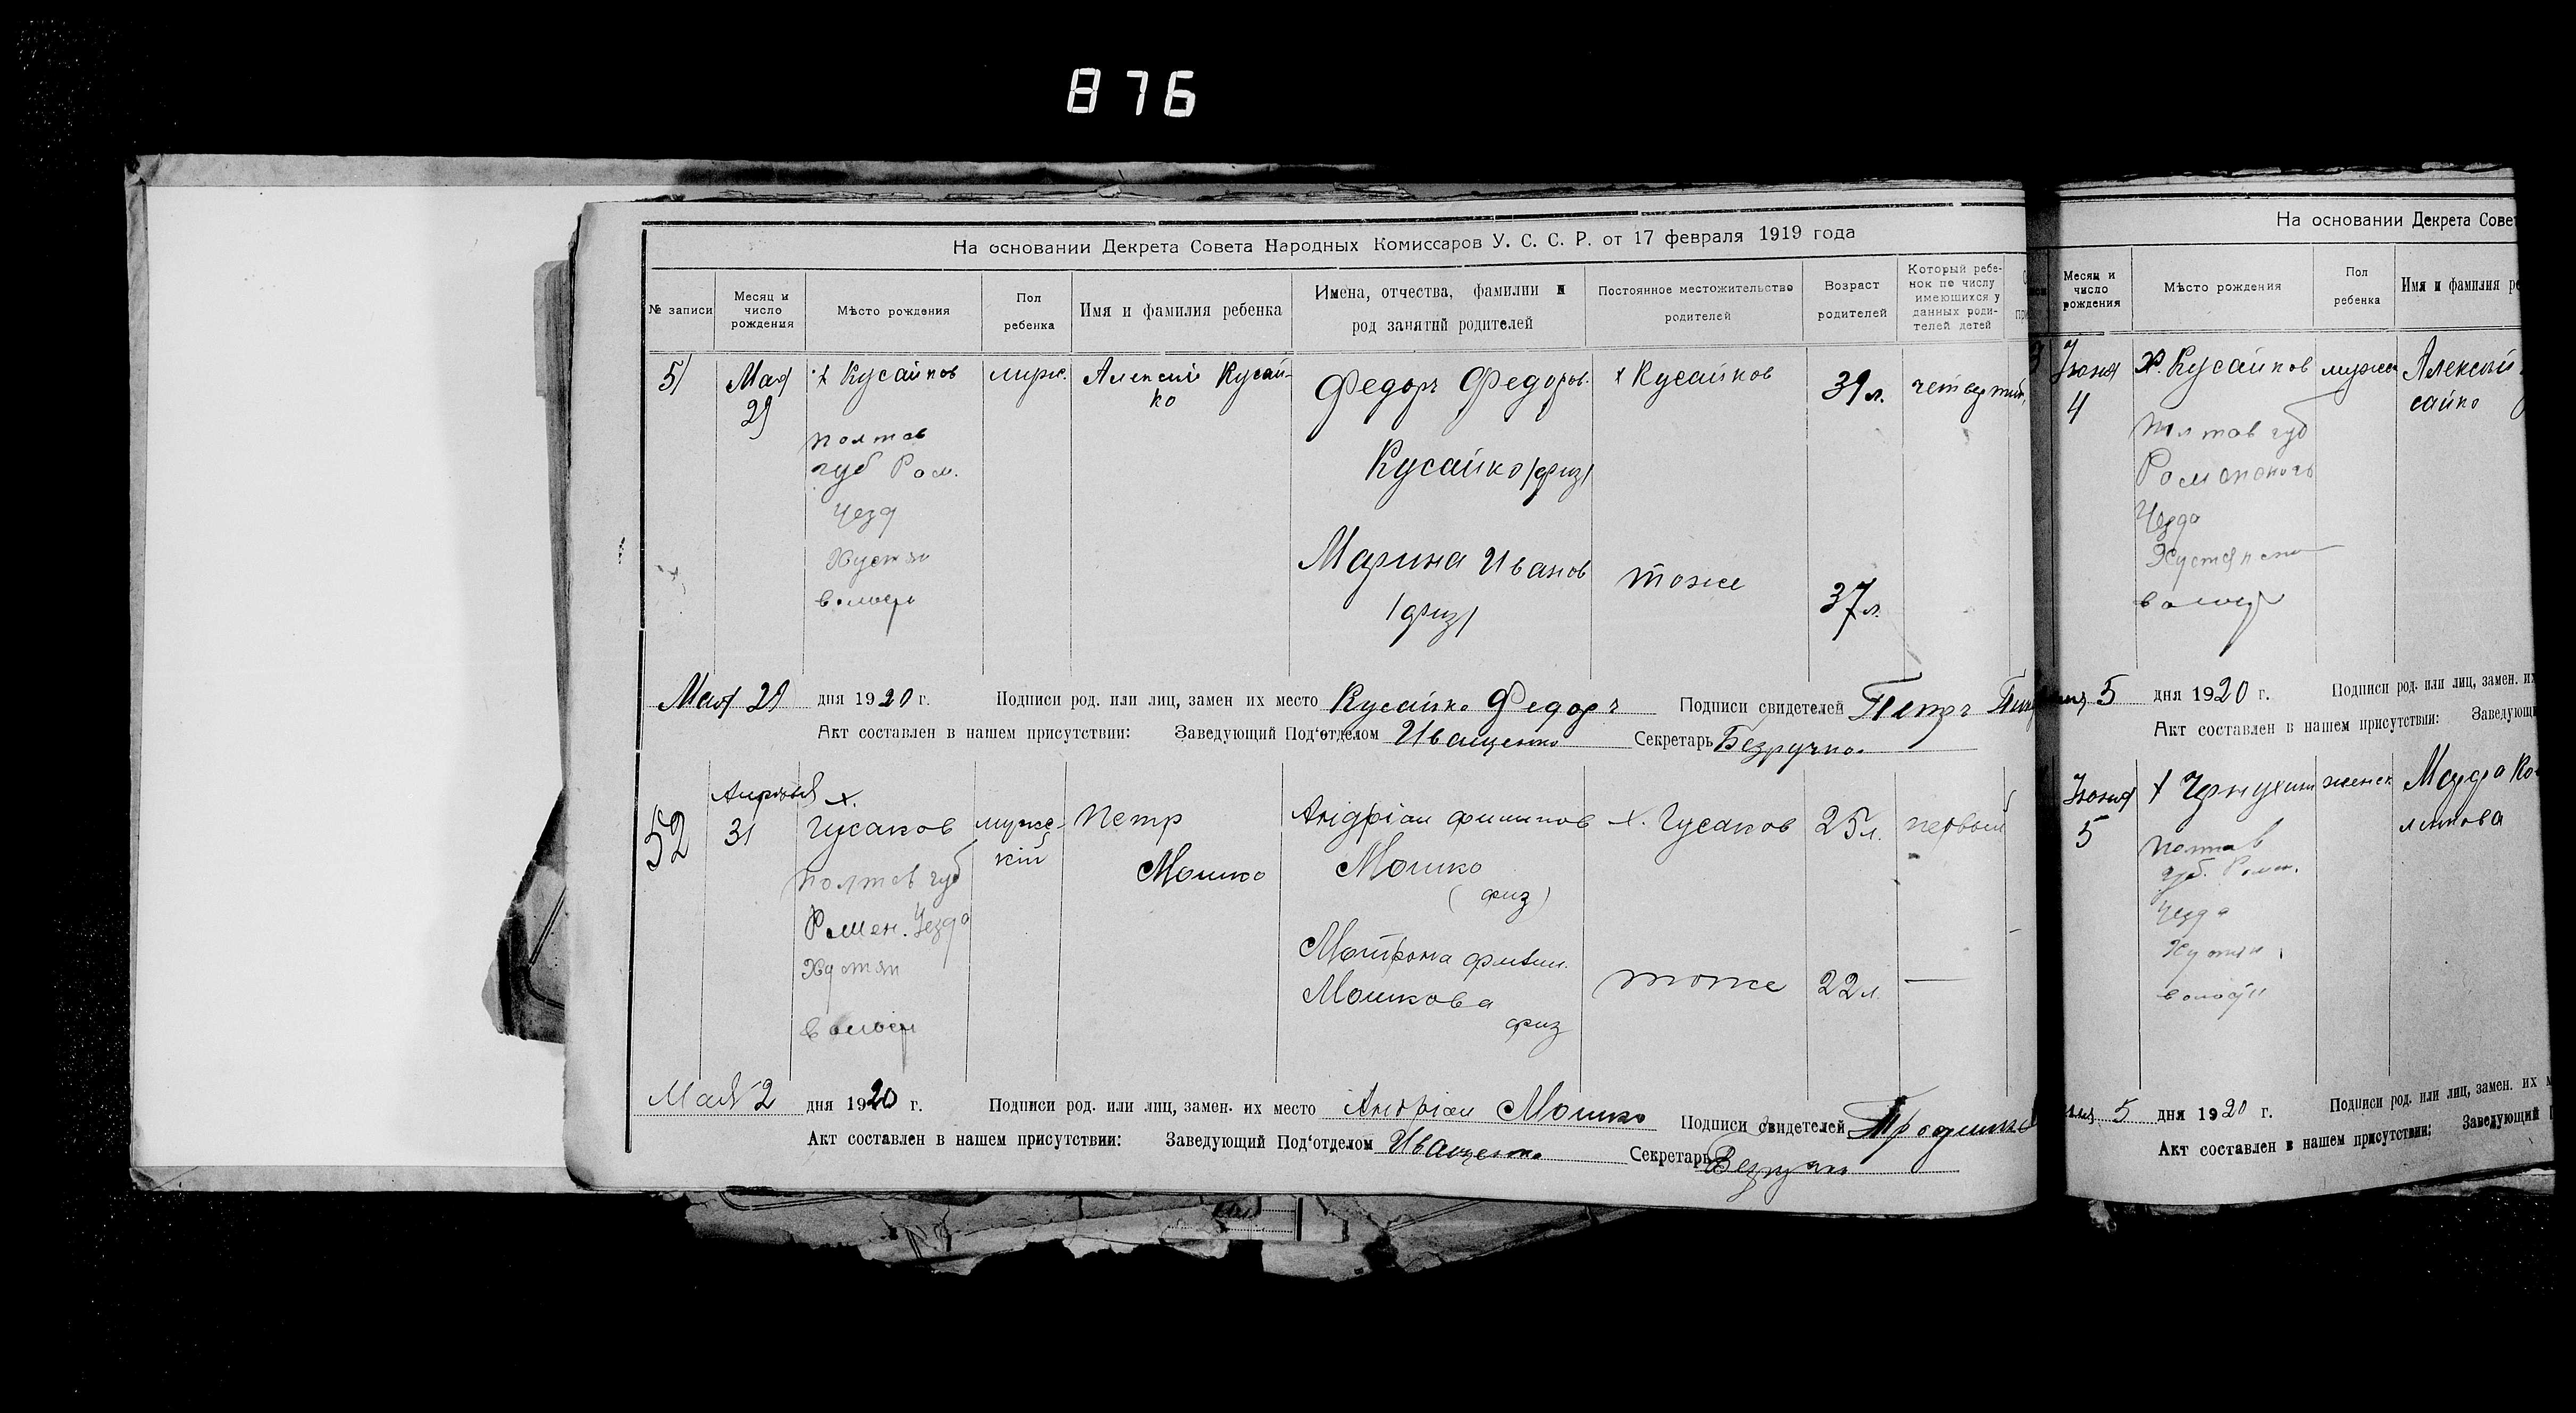 876
На основании Декрета Совета Народных Комиссаров У. С. С. Р. от 17 февраля 1919 года
№ записи
Месяц и
число
рождения
Мѣсто рождения
Пол
ребенка
Имя и фамилия ребенка
Имена, отчества, фамилии и
род занятий родителей
Постоянное местожительство
родителей
Возраст
родителей
Который ребе-
нок по числу
имеющихся у
данных роди-
телей детей
51
Мая
29
х Кусайков
Полтав
губ Ром.
Уезд
Хустян
волости
мужс.
Алексій Кусай-
ко
Федоръ Федоров.
Кусайко (физ)
Марина Иванов
(физ)
х Кусайков
тоже
39 л.
37 л.
четвертый
Мая 29 дня 1920 г. Подписи род. или лиц, замен их место Кусайко Федоръ Подписи свидетелей Петръ
Акт составлен в нашем присутствии: Заведующий Под'отделом Иващенко Секретарь Безручко
52
Апреля
31
х.
Гусаков
Полтав губ
Ромен. Уезда
Хустян
волости
мужс-
кій
Петр
Мошко
Андріан Филипов
Мошко
(физ)
Матрона Филип.
Мошкова
физ
х. Гусаков
тоже
25 л.
22 л.
первый
—
Мая 2 дня 1920 г. Подписи род. или лиц, замен. их место Андріан Мошко Подписи свидетелей
Акт составлен в нашем присутствии: Заведующий Под'отделом Иващенко Секретарь Безручко
На основании Декрета Совет
Месяц и
число
рождения
Мѣсто рождения
Пол
ребенка
Имя и фамилия ре
3
Іюня
4
х. Кусайков
Полтав губ
Роменского
Уезда
Хустянской
волости
мужс
Алексей
сайко
5 дня 1920 г. Подписи род. или лиц, замен. их
Акт составлен в нашем присутствии: Заведующ
Іюня
5
х
Полтав
губ. Ромен.
Уезда
Хустян
волости
женск
5 дня 1920 г. Подписи род. или лиц, замен. их м
Акт составлен в нашем присутствии: Заведующий П